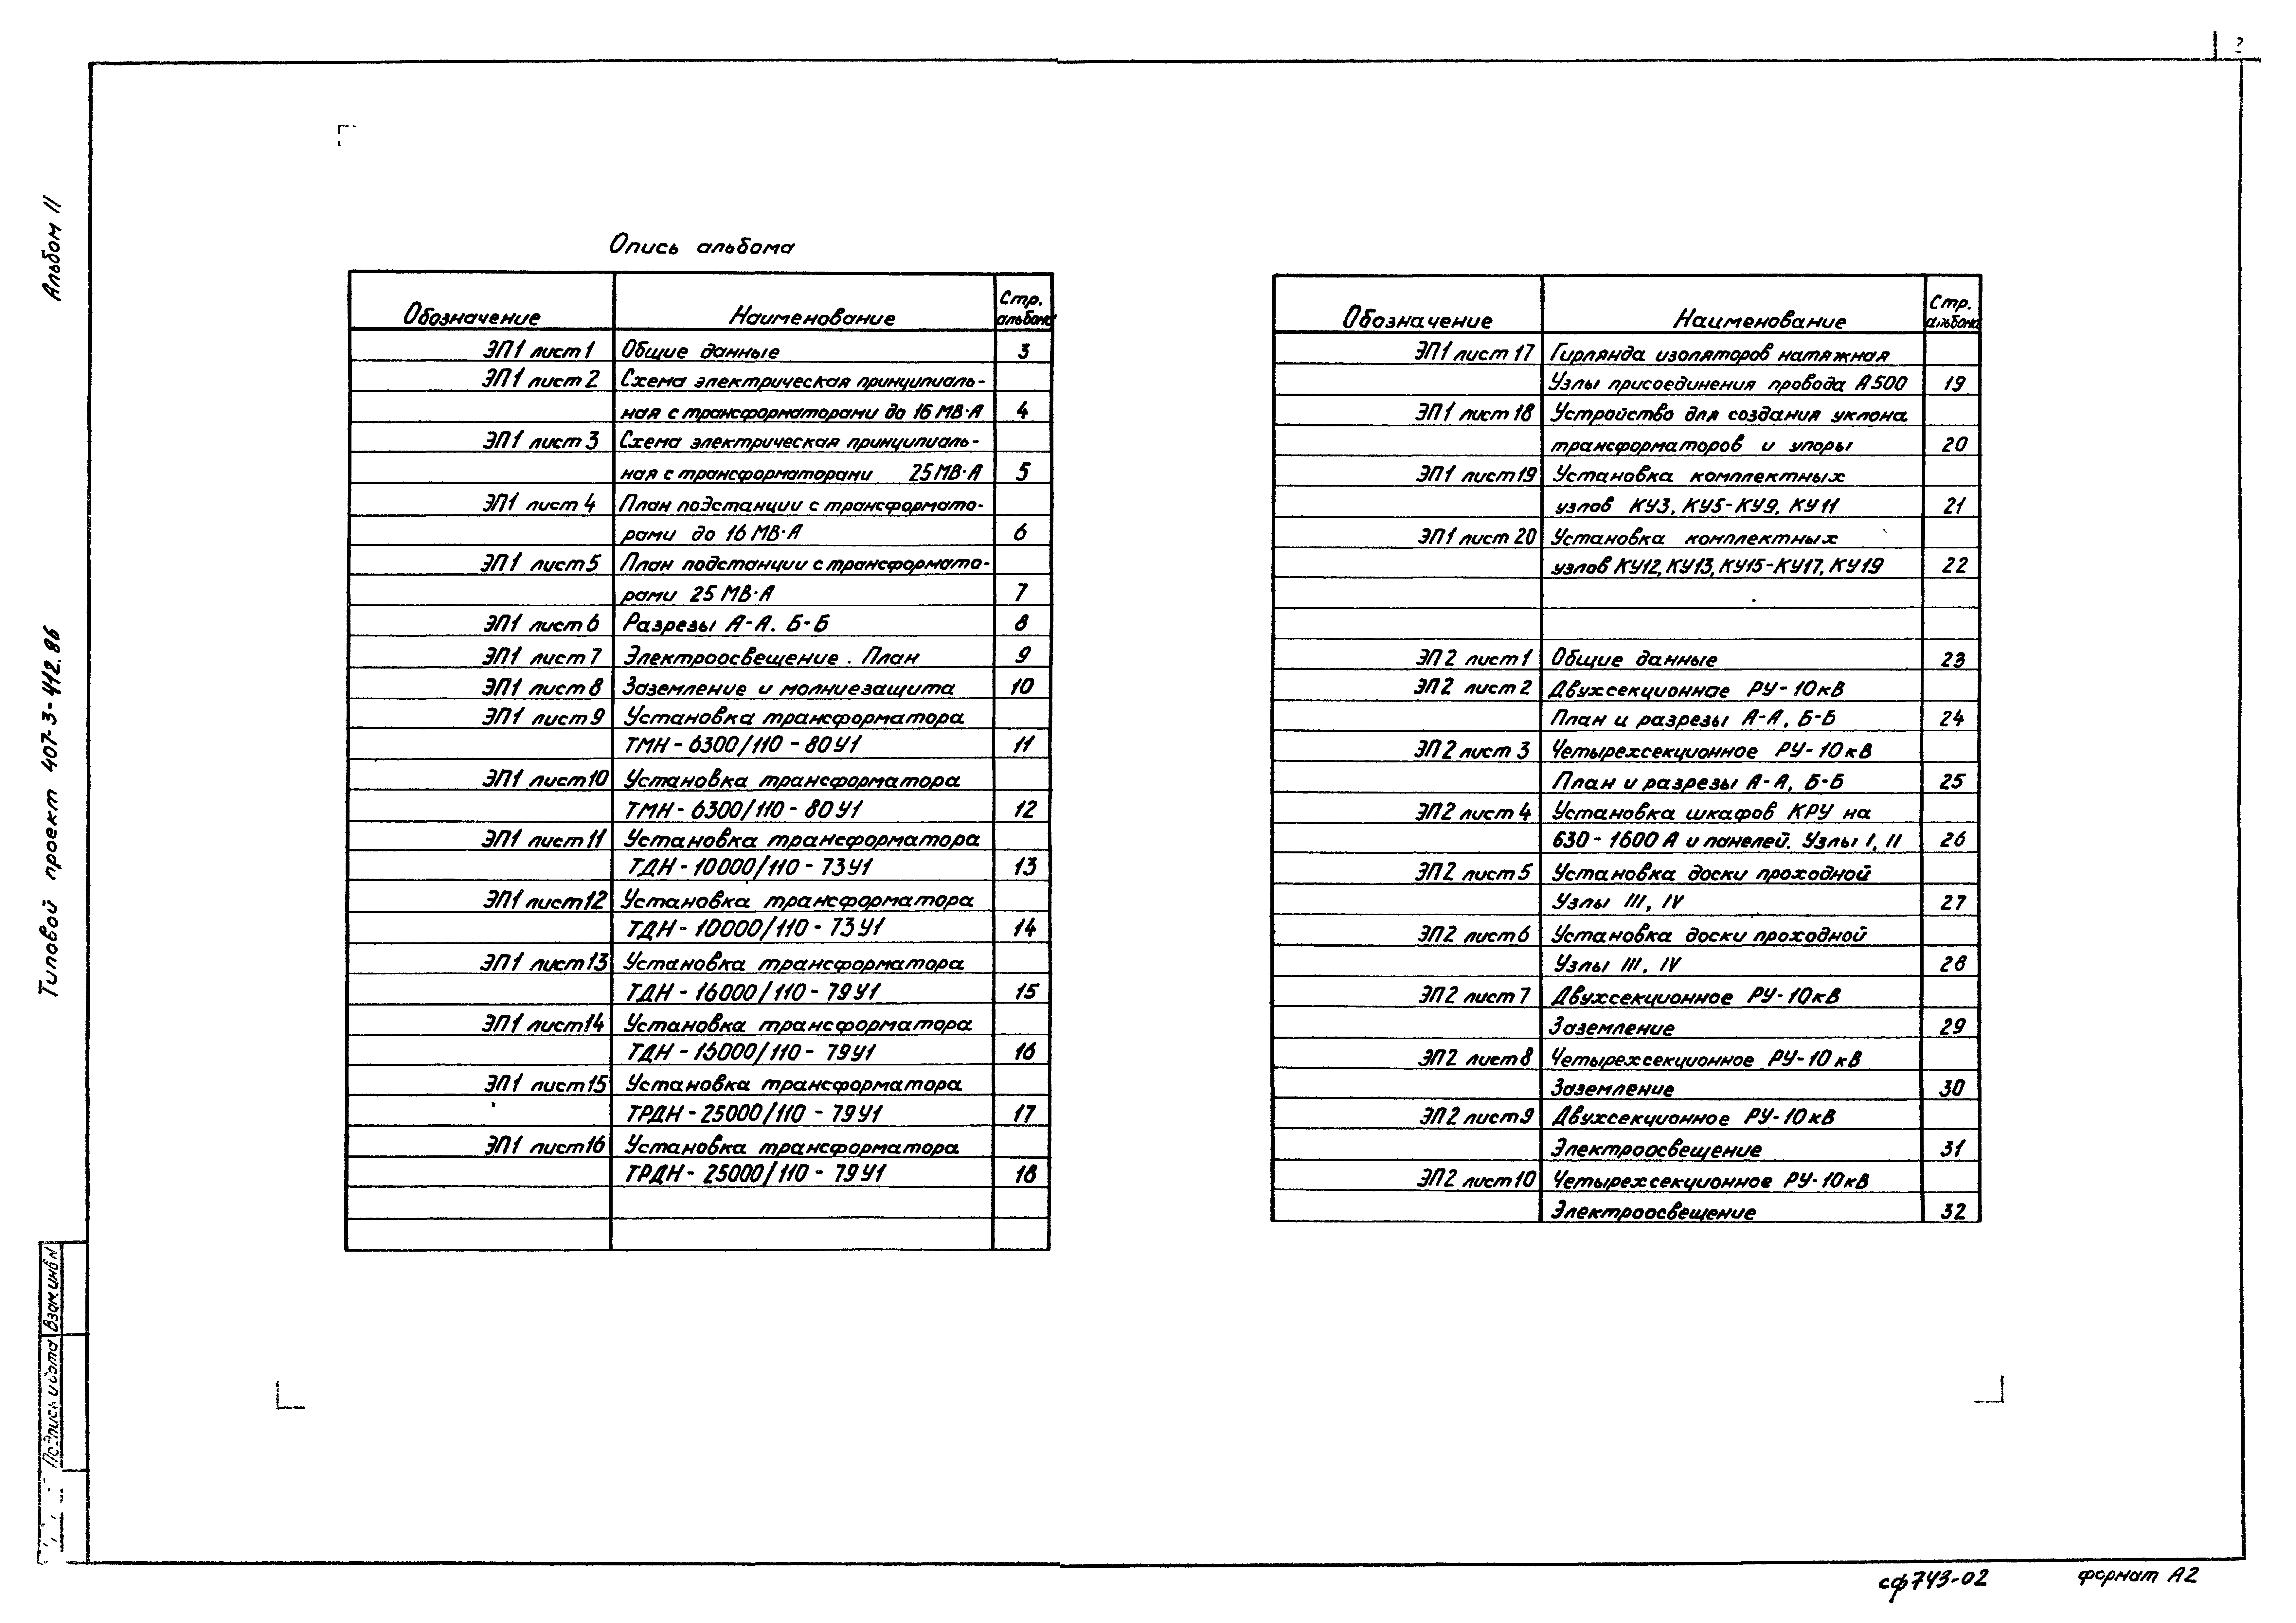 2
Альбом II
Типовой проект 407-3-412.86
Опись альбома
Обозначение Наименование Стр. альбома
ЭП1 лист 1 Общие данные 3
ЭП1 лист 2 Схема электрическая принципиаль-
ная с трансформаторами до 16 МВ·А 4
ЭП1 лист 3 Схема электрическая принципиаль-
ная с трансформаторами 25 МВ·А 5
ЭП1 лист 4 План подстанции с трансформато-
рами до 16 МВ·А 6
ЭП1 лист 5 План подстанции с трансформато-
рами 25 МВ·А 7
ЭП1 лист 6 Разрезы А-А. Б-Б 8
ЭП1 лист 7 Электроосвещение. План 9
ЭП1 лист 8 Заземление и молниезащита 10
ЭП1 лист 9 Установка трансформатора
ТМН-6300/110-80У1 11
ЭП1 лист 10 Установка трансформатора
ТМН-6300/110-80У1 12
ЭП1 лист 11 Установка трансформатора
ТДН-10000/110-73У1 13
ЭП1 лист 12 Установка трансформатора
ТДН-10000/110-73У1 14
ЭП1 лист 13 Установка трансформатора
ТДН-16000/110-79У1 15
ЭП1 лист 14 Установка трансформатора
ТДН-16000/110-79У1 16
ЭП1 лист 15 Установка трансформатора
ТРДН-25000/110-79У1 17
ЭП1 лист 16 Установка трансформатора
ТРДН-25000/110-79У1 18
Обозначение Наименование Стр. альбома
ЭП1 лист 17 Гирлянда изоляторов натяжная
Узлы присоединения провода А500 19
ЭП1 лист 18 Устройство для создания уклона
трансформаторов и упоры 20
ЭП1 лист 19 Установка комплектных
узлов КУ3, КУ5-КУ9, КУ11 21
ЭП1 лист 20 Установка комплектных
узлов КУ12, КУ13, КУ15-КУ17, КУ19 22
ЭП2 лист 1 Общие данные 23
ЭП2 лист 2 Двухсекционное РУ-10кВ
План и разрезы А-А, Б-Б 24
ЭП2 лист 3 Четырехсекционное РУ-10кВ
План и разрезы А-А, Б-Б 25
ЭП2 лист 4 Установка шкафов КРУ на
630-1600 А и панелей. Узлы I, II 26
ЭП2 лист 5 Установка доски проходной
Узлы III, IV 27
ЭП2 лист 6 Установка доски проходной
Узлы III, IV 28
ЭП2 лист 7 Двухсекционное РУ-10кВ
Заземление 29
ЭП2 лист 8 Четырехсекционное РУ-10кВ
Заземление 30
ЭП2 лист 9 Двухсекционное РУ-10кВ
Электроосвещение 31
ЭП2 лист 10 Четырехсекционное РУ-10кВ
Электроосвещение 32
Взам.инв N
Подпись и дата
сф743-02 формат А2